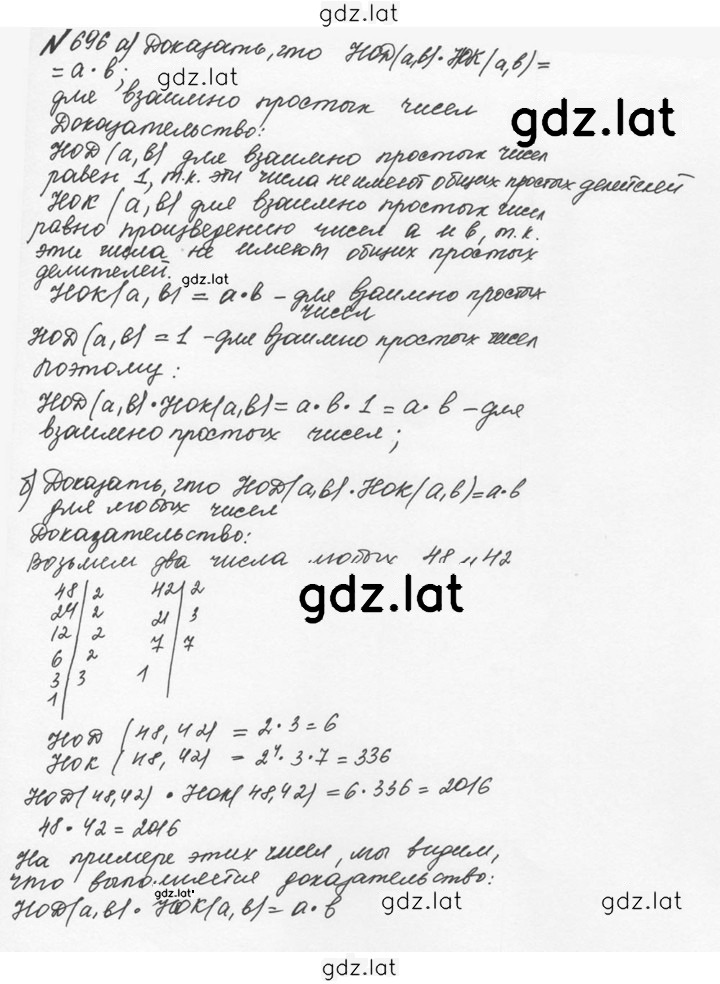 gdz.lat
№696 а) Доказать, что НОД(а,в)·НОК(а,в)=
= а·в;
gdz.lat
для взаимно простых чисел
gdz.lat
Доказательство:
НОД(а,в) для взаимно простых чисел
равен 1, т.к. эти числа не имеют общих простых делителей
НОК(а,в) для взаимно простых чисел
равно произведению чисел а и в, т.к.
эти числа не имеют общих простых
делителей.
gdz.lat
НОК(а,в) = а·в – для взаимно простых
чисел
НОД(а,в) = 1 – для взаимно простых чисел
Поэтому:
НОД(а,в)·НОК(а,в) = а·в·1 = а·в – для
взаимно простых чисел;
б) Доказать, что НОД(а,в)·НОК(а,в)=а·в
для любых чисел
Доказательство:
Возьмем два числа любых 48 и 42
48|2 42|2
24|2 21|3
12|2 7|7
6|2 1
3|3
1
gdz.lat
НОД(48,42) = 2·3=6
НОК(48,42) = 2⁴·3·7=336
НОД(48,42)·НОК(48,42)=6·336=2016
48·42=2016
На примере этих чисел, мы видим,
что выполняется доказательство:
gdz.lat
НОД(а,в)·НОК(а,в)=а·в
gdz.lat
gdz.lat
gdz.lat